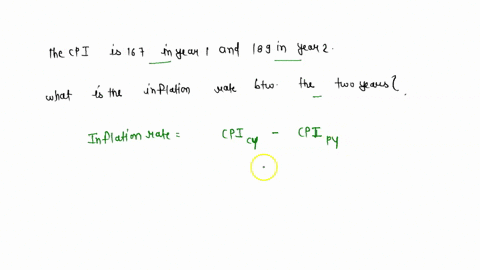 the CPI is 167 in year 1 and 189 in year 2.
what is the inflation rate btw. the two years?
Inflation rate = CPI cy - CPI py